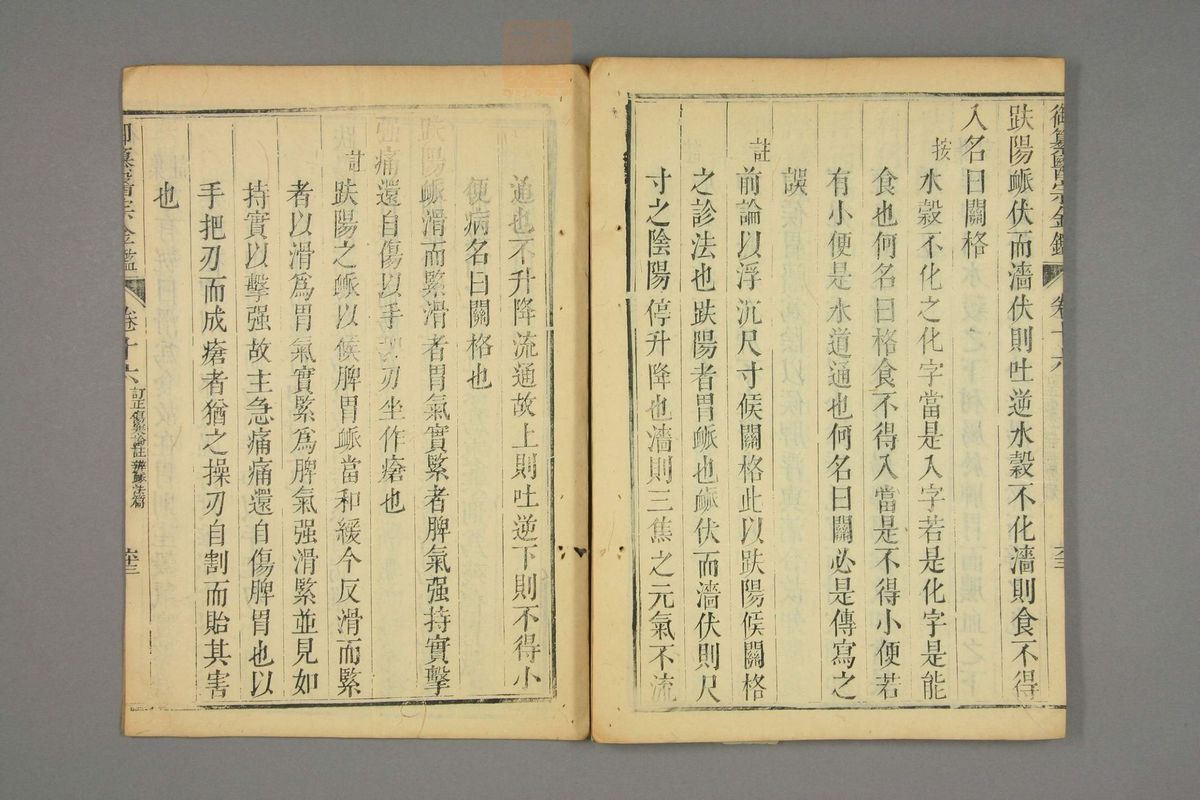 御纂醫宗金鑑 卷十六 六十三
趺陽𧖴伏而濇伏則吐逆水穀不化濇則食不得
入名曰關格
按 水穀不化之化字當是入字若是化字是能
食也何名曰格食不得入當是不得小便若
有小便是水道通也何名曰關必是傳寫之
誤
註 前論以浮沉尺寸候關格此以趺陽候關格
之診法也趺陽者胃𧖴也𧖴伏而濇伏則尺
寸之陰陽停升降也濇則三焦之元氣不流
通也不升降流通故上則吐逆下則不得小
便病名曰關格也
趺陽𧖴滑而緊滑者胃氣實緊者脾氣强持實擊
强痛還自傷以手把刃坐作瘡也
註 趺陽之𧖴以候脾胃𧖴當和緩今反滑而緊
者以滑爲胃氣實緊爲脾氣强滑緊並見如
持實以擊强故主急痛痛還自傷脾胃也以
手把刃而成瘡者猶之操刃自割而貽其害
也
御纂醫宗金鑑 卷十六 訂正傷寒論註辨𧖴法篇 六十三